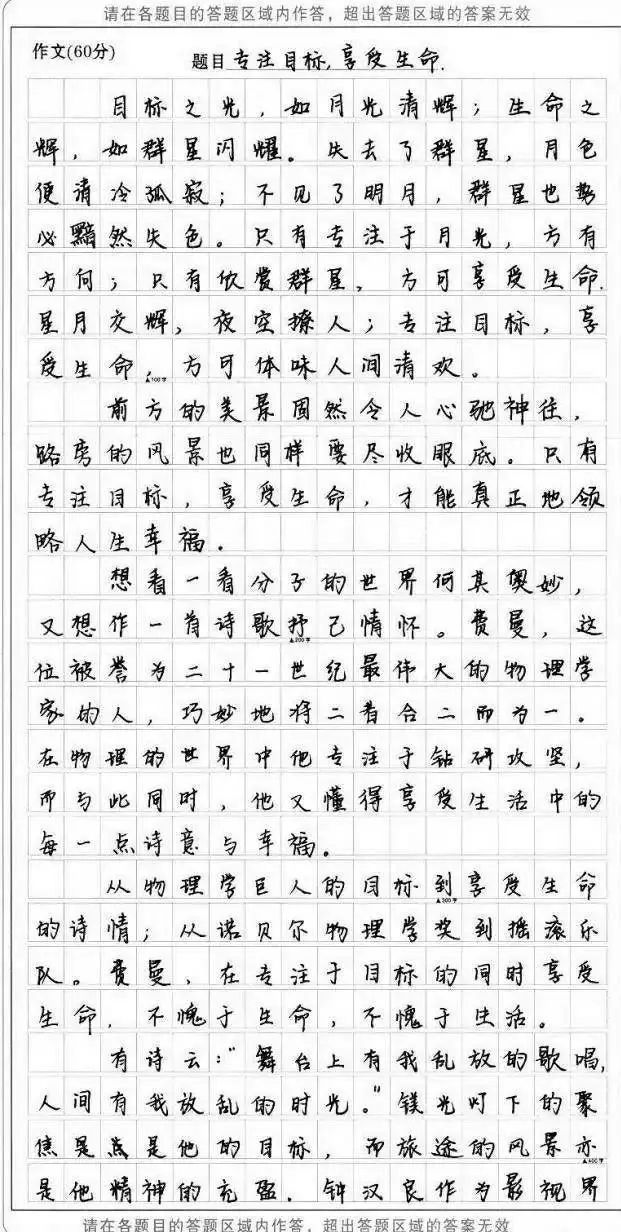 请在各题目的答题区域内作答，超出答题区域的答案无效
作文(60分)
题目 专注目标,享受生命.
目标之光，如月光清辉；生命之
辉，如群星闪耀。失去了群星，月色
便清冷孤寂；不见了明月，群星也势
必黯然失色。只有专注于月光，方有
方向；只有欣赏群星，方可享受生命.
星月交辉，夜空撩人；专注目标，享
受生命，方可体味人间清欢。
▲100字
前方的美景固然令人心驰神往，
路旁的风景也同样要尽收眼底。只有
专注目标，享受生命，才能真正地领
略人生幸福.
想看一看分子的世界何其奥妙，
又想作一首诗歌抒己情怀。费曼，这
▲200字
位被誉为二十一世纪最伟大的物理学
家的人，巧妙地将二者合二而为一。
在物理的世界中他专注于钻研攻坚，
而与此同时，他又懂得享受生活中的
每一点诗意与幸福。
从物理学巨人的目标到享受生命
▲300字
的诗情；从诺贝尔物理学奖到摇滚乐
队。费曼，在专注于目标的同时享受
生命，不愧于生命，不愧于生活。
有诗云：“舞台上有我乱放的歌唱,
人间有我放乱的时光。”镁光灯下的聚
焦是点是他的目标，而旅途的风景亦
▲400字
是他精神的充盈.钟汉良作为影视界
请在各题目的答题区域内作答，超出答题区域的答案无效